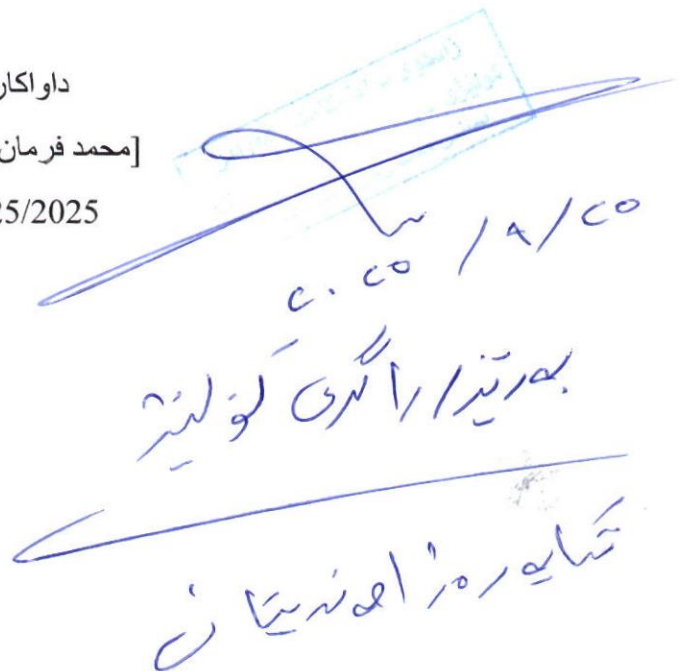 داواكار
[محمد فرمان
25/2025
٢٠٢٥ / ٨ / ٢٥
بەڕێز/ ڕاگری کۆلێژ
تکایە ڕەزامەندیتان